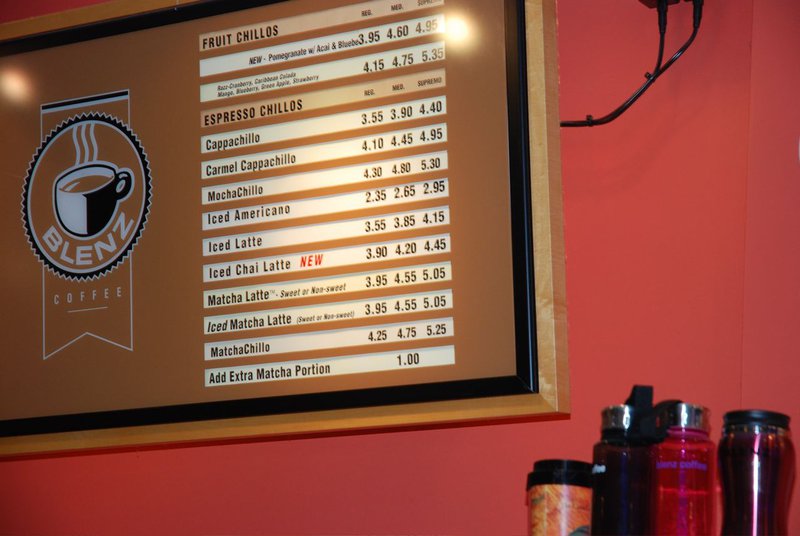 REG. MED. SUPREMO
FRUIT CHILLOS
NEW - Pomegranate w/ Acai & Bluebe 3.95 4.60 4.95
Razz-Cranberry, Caribbean Colada
Mango, Blueberry, Green Apple, Strawberry 4.15 4.75 5.35
REG. MED. SUPREMO
ESPRESSO CHILLOS
Cappachillo 3.55 3.90 4.40
Carmel Cappachillo 4.10 4.45 4.95
MochaChillo 4.30 4.80 5.30
Iced Americano 2.35 2.65 2.95
Iced Latte 3.55 3.85 4.15
Iced Chai Latte NEW 3.90 4.20 4.45
Matcha Latte™ - Sweet or Non-sweet 3.95 4.55 5.05
Iced Matcha Latte (Sweet or Non-sweet) 3.95 4.55 5.05
MatchaChillo 4.25 4.75 5.25
Add Extra Matcha Portion 1.00
BLENZ
COFFEE
blenz coffee